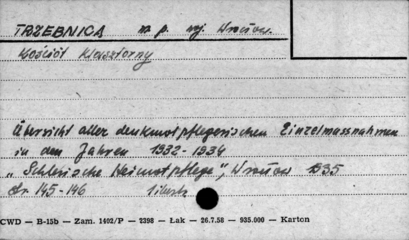 TRZEBNICA m. p. woj. Wrocław.
Kościół Klasztorny
Übersicht aller denkmalpflegerischen Einzelmassnahmen
in den Jahren 1932-1934
„Schlesische Heimatpflege", Wrocław 1935
str 145-146
CWD — B-15b — Zam. 1402/P — 2398 — Łak — 26.7.58 — 935.000 — Karton